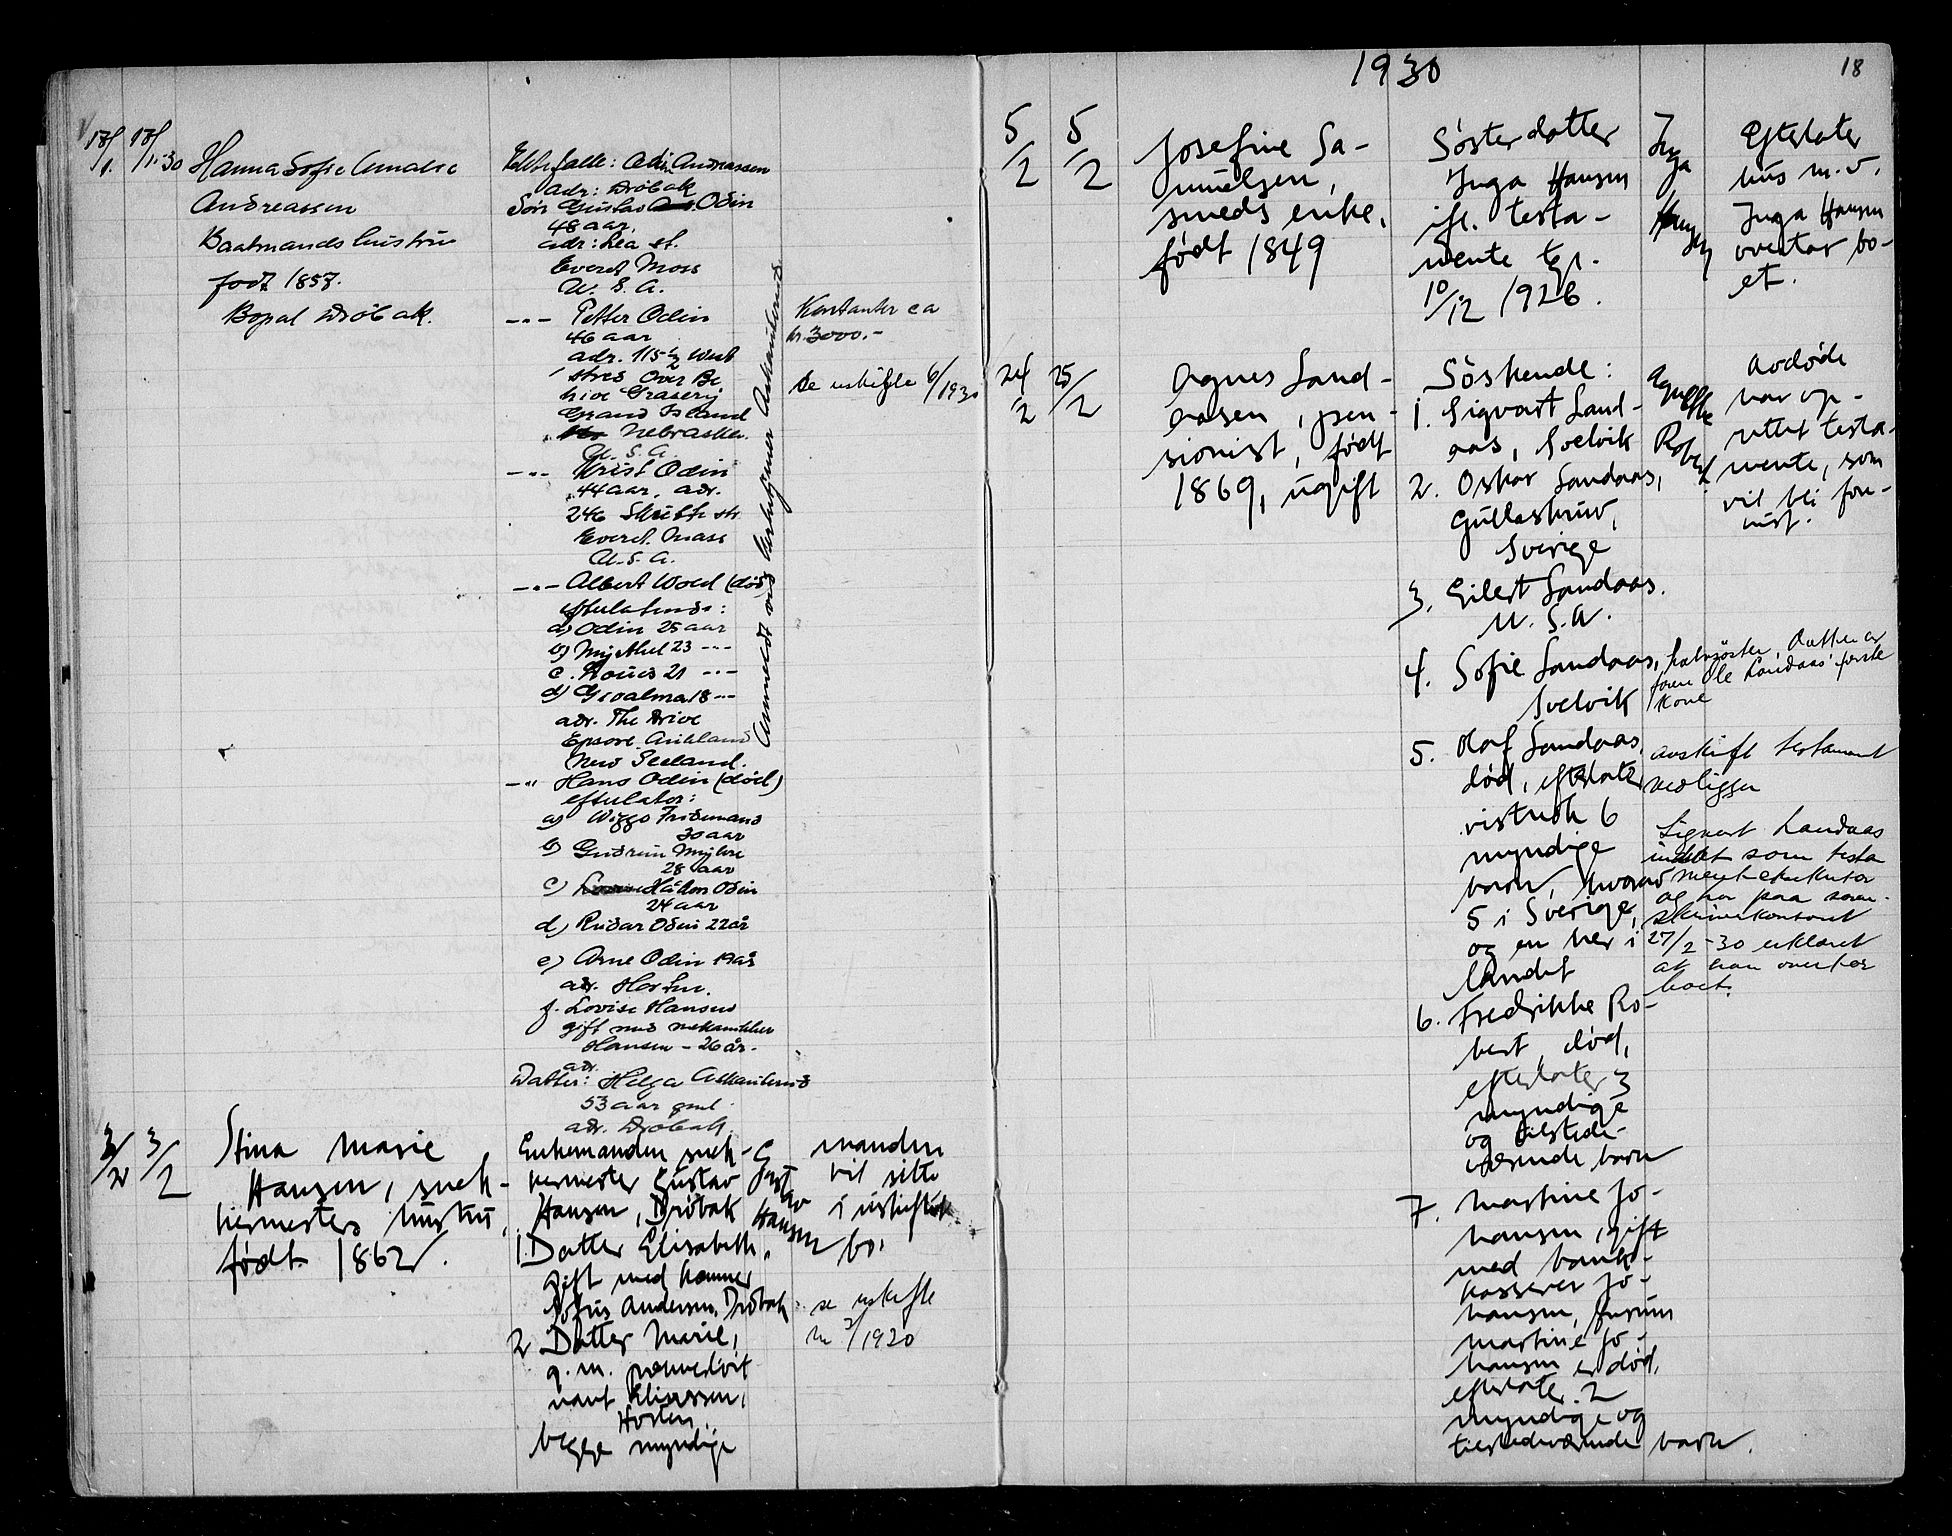 17/1. 17/1.30
Hanna Sofie Amalie
Andreassen
Baatmands hustru
født 1857.
Bopal Drøbak.
Andreassen
adr: Drøbak
Søn Gustav Odin
48 aar,
adr: Lea st.
Everet Mass
U. S. A.
-"- Petter Odin
46 aar
adr. 115 ½ West
stred over Be
hive Grasery
Grand Island
Nebraska.
U. S. A.
-"- Krist Odin
44 aar, adr.
246 str
Everet. Mass
U. S. A.
-"- Albert Wold (død)
efterlatende:
a) Odin 25 aar
b) 23 -"-
c. Louis 21 -"-
d) 18 -"-
adr. The Drive
Epsove. Aukland
New Seeland.
-"- Hans Odin (død)
efterlater:
a) Wiggo Fridemand
30 aar
b) Gudrun Myhre
28 aar
c) Håkon Odin
24 aar
d) Reidar Odin 22 år
e) Arne Odin 19 år
adr. Horten.
f. Lovise Hansen
gift med mekaniker
Hansen - 26 år.
adr.
Datter: Helga
53 aar gml.
adr. Drøbak.
Anmeldt ved
Kontanter ca
kr. 3000.-
se uskifte 6/1930
3/2 3/2
Stina Marie
Hansen, snek-
kermesters hustru,
født 1862.
Enkemanden snek-
kermester Gustav
Hansen, Drøbak
1. Datter Elisabeth,
gift med
Andersen, Drøbak
2 Datter Marie,
g. m.
nant Eliassen,
Horten,
begge myndige
Gustav
Hansen
manden
vil sitte
i uskiftet
bo.
se uskifte
nr 2/1920
1930
18
5/2 5/2
Josefine Sa-
muelsen,
smeds enke,
født 1849
Søsterdatter
Inga Hansen
ifl. testa-
mente
10/12 1926.
Inga
Hansen
Efterlater
hus m.v.
Inga Hansen
overtar bo-
et.
24/2 25/2
Agnes Land-
aasen, pen-
sionist, født
1869, ugift
Søskende:
1. Sigvart Land-
aas, Svelvik
2. Oskar Landaas,
Gullaskruv,
Sverige
3. Eilert Landaas.
U. S. A.
4. Sofie Landaas,
Svelvik
5. Olaf Landaas,
død, efterlater
vistnok 6
myndige
barn, hvorav
5 i Sverige,
og en her i
landet
6. Fredrikke Ro-
bert, død,
efterlater 3
myndige
og tilstede-
værende barn
7. Martine Jo-
hansen, gift
med bank-
kasserer Jo-
hansen,
Martine Jo-
hansen er død,
efterlater 2
myndige og
tilstedeværende barn.
Robert
Avdøde
har op-
rettet testa-
mente, som
vil bli frem-
vist.
halvsøster, datter av
Ole Landaas' første
kone
avskrift testament
vedligger
Sigvart Landaas
indsat som testa
mentseksekutor
og har paa soren-
skriverkontoret
27/2 -30 erklæret
at han overtar
boet.